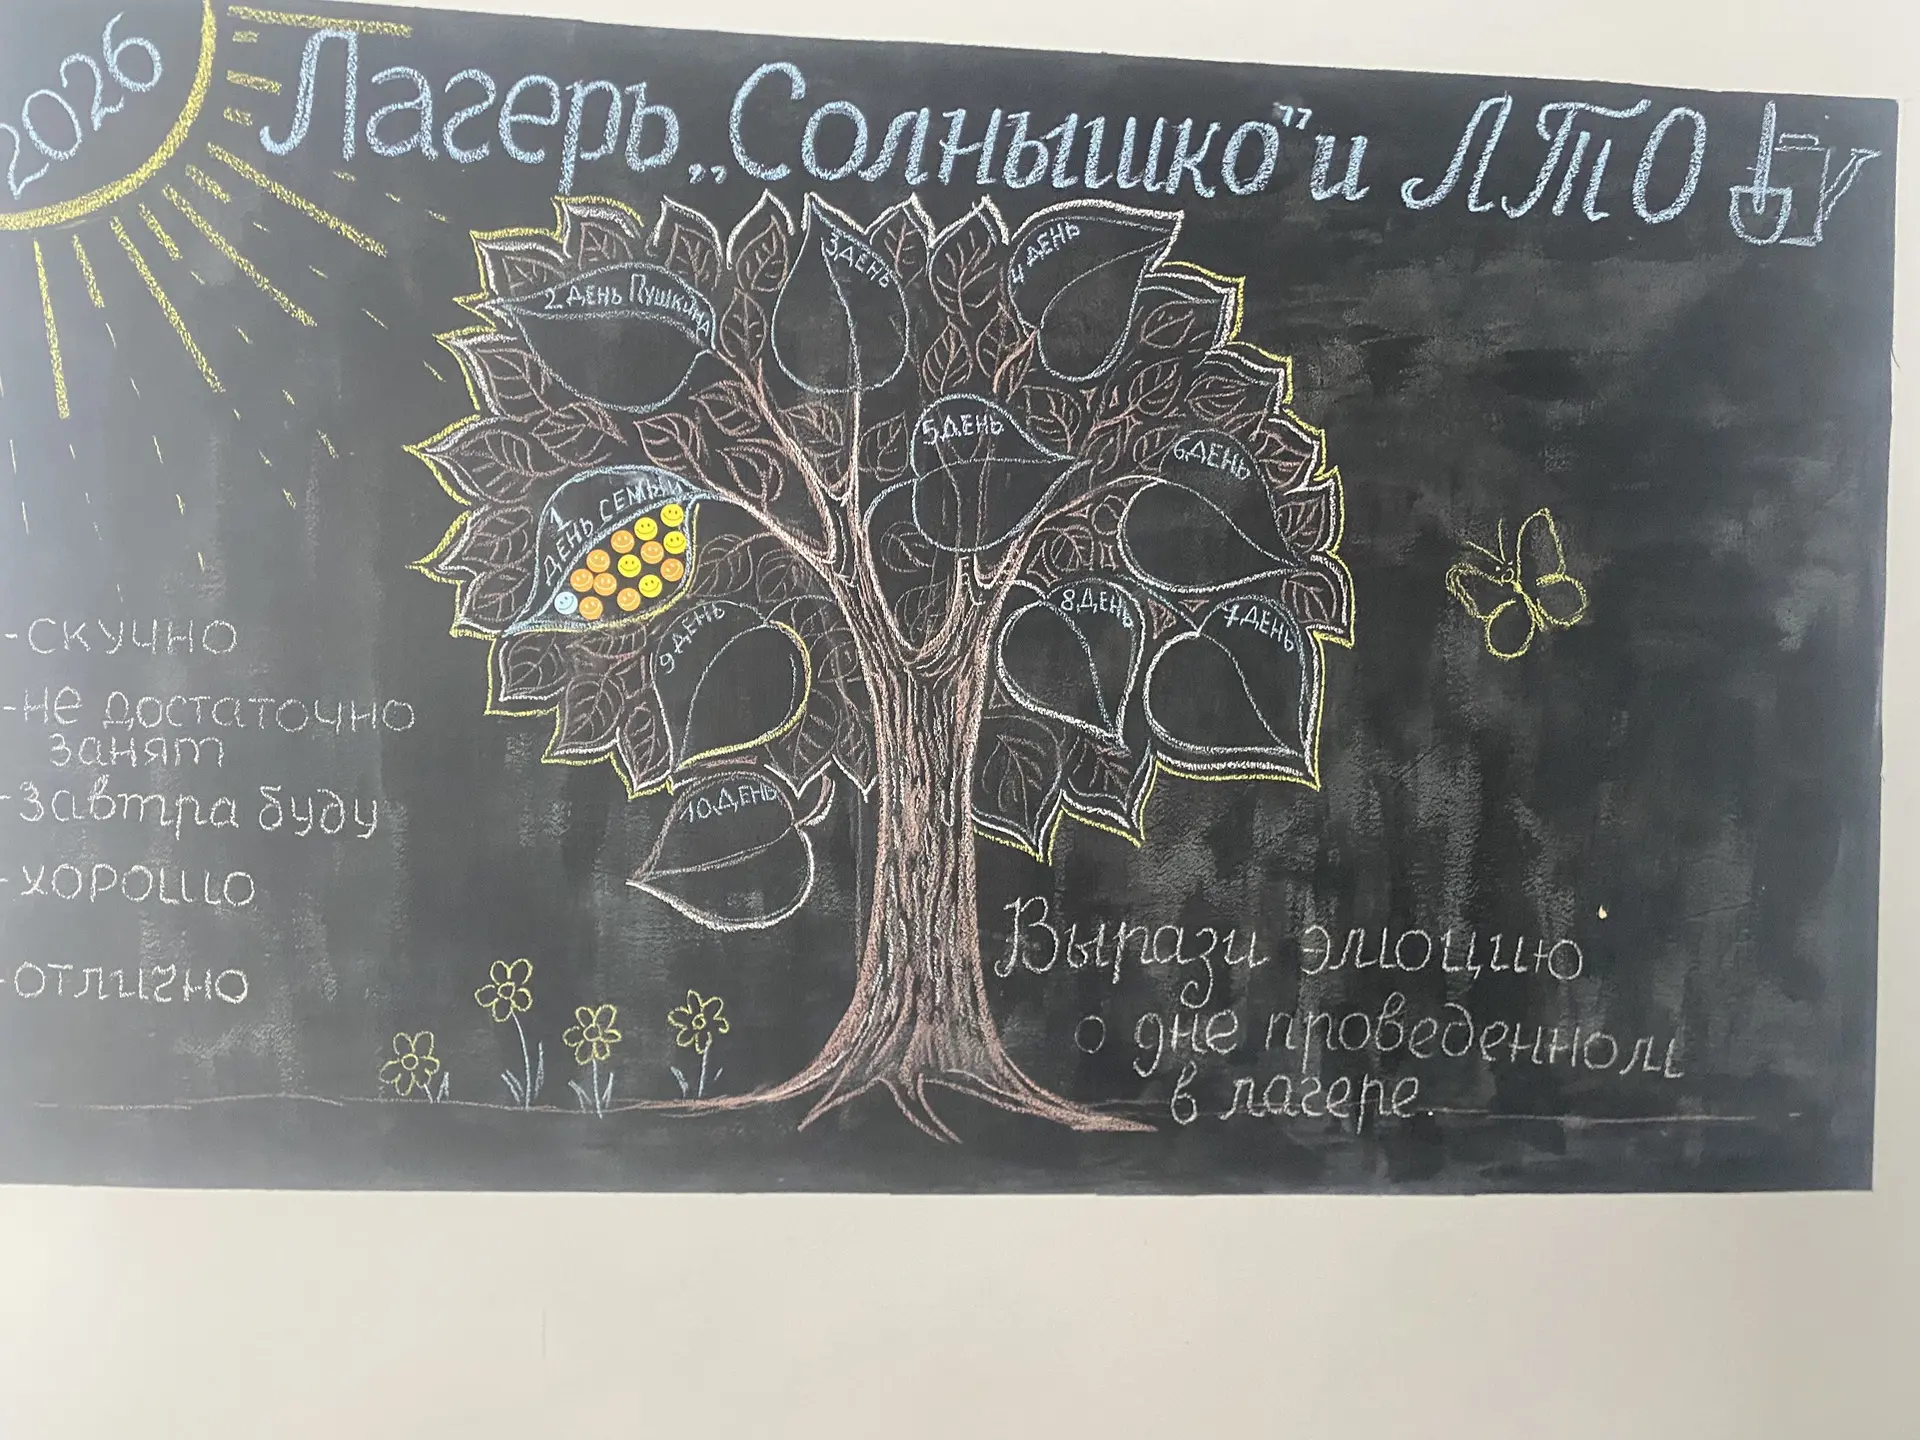 2026
Лагерь „Солнышко” и ЛТО
3 ДЕНЬ
4 ДЕНЬ
2. ДЕНЬ ПУШКИНА
5 ДЕНЬ
6 ДЕНЬ
1
ДЕНЬ СЕМЬИ
8 ДЕНЬ
7 ДЕНЬ
9 ДЕНЬ
10. ДЕНЬ
-скучно
-не достаточно
занят
-Завтра буду
-хорошо
-отлично
Вырази эмоцию
о дне проведенном
в лагере.